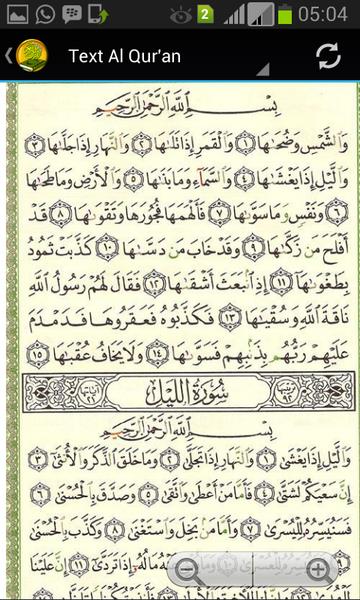 2 05:04
Text Al Qur'an
بِسْمِ اللَّهِ الرَّحْمَٰنِ الرَّحِيمِ
وَالشَّمْسِ وَضُحَىٰهَا ١ وَالْقَمَرِ إِذَا تَلَىٰهَا ٢ وَالنَّهَارِ إِذَا جَلَّىٰهَا ٣
وَالَّيْلِ إِذَا يَغْشَىٰهَا ٤ وَالسَّمَاءِ وَمَا بَنَىٰهَا ٥ وَالْأَرْضِ وَمَا طَحَىٰهَا
٦ وَنَفْسٍ وَمَا سَوَّىٰهَا ٧ فَأَلْهَمَهَا فُجُورَهَا وَتَقْوَىٰهَا ٨ قَدْ
أَفْلَحَ مَن زَكَّىٰهَا ٩ وَقَدْ خَابَ مَن دَسَّىٰهَا ١٠ كَذَّبَتْ ثَمُودُ
بِطَغْوَىٰهَا ١١ إِذِ انبَعَثَ أَشْقَىٰهَا ١٢ فَقَالَ لَهُمْ رَسُولُ اللَّهِ
نَاقَةَ اللَّهِ وَسُقْيَىٰهَا ١٣ فَكَذَّبُوهُ فَعَقَرُوهَا فَدَمْدَمَ
عَلَيْهِمْ رَبُّهُم بِذَنبِهِمْ فَسَوَّىٰهَا ١٤ وَلَا يَخَافُ عُقْبَىٰهَا ١٥
سُورَةُ اللَّيْلِ
بِسْمِ اللَّهِ الرَّحْمَٰنِ الرَّحِيمِ
وَالَّيْلِ إِذَا يَغْشَىٰ ١ وَالنَّهَارِ إِذَا تَجَلَّىٰ ٢ وَمَا خَلَقَ الذَّكَرَ وَالْأُنثَىٰ ٣
إِنَّ سَعْيَكُمْ لَشَتَّىٰ ٤ فَأَمَّا مَنْ أَعْطَىٰ وَاتَّقَىٰ ٥ وَصَدَّقَ بِالْحُسْنَىٰ ٦
فَسَنُيَسِّرُهُ لِلْيُسْرَىٰ ٧ وَأَمَّا مَن بَخِلَ وَاسْتَغْنَىٰ ٨ وَكَذَّبَ بِالْحُسْنَىٰ
٩ فَسَنُيَسِّرُهُ لِلْعُسْرَىٰ ١٠ وَمَا يُغْنِي عَنْهُ مَالُهُ إِذَا تَرَدَّىٰ ١١ إِنَّ عَلَيْنَا